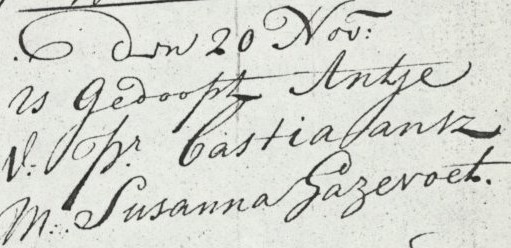 Den 20 Nov:
is Gedoopt Antje
V. Pr. Bastiaansz
M: Susanna Gazevoet.